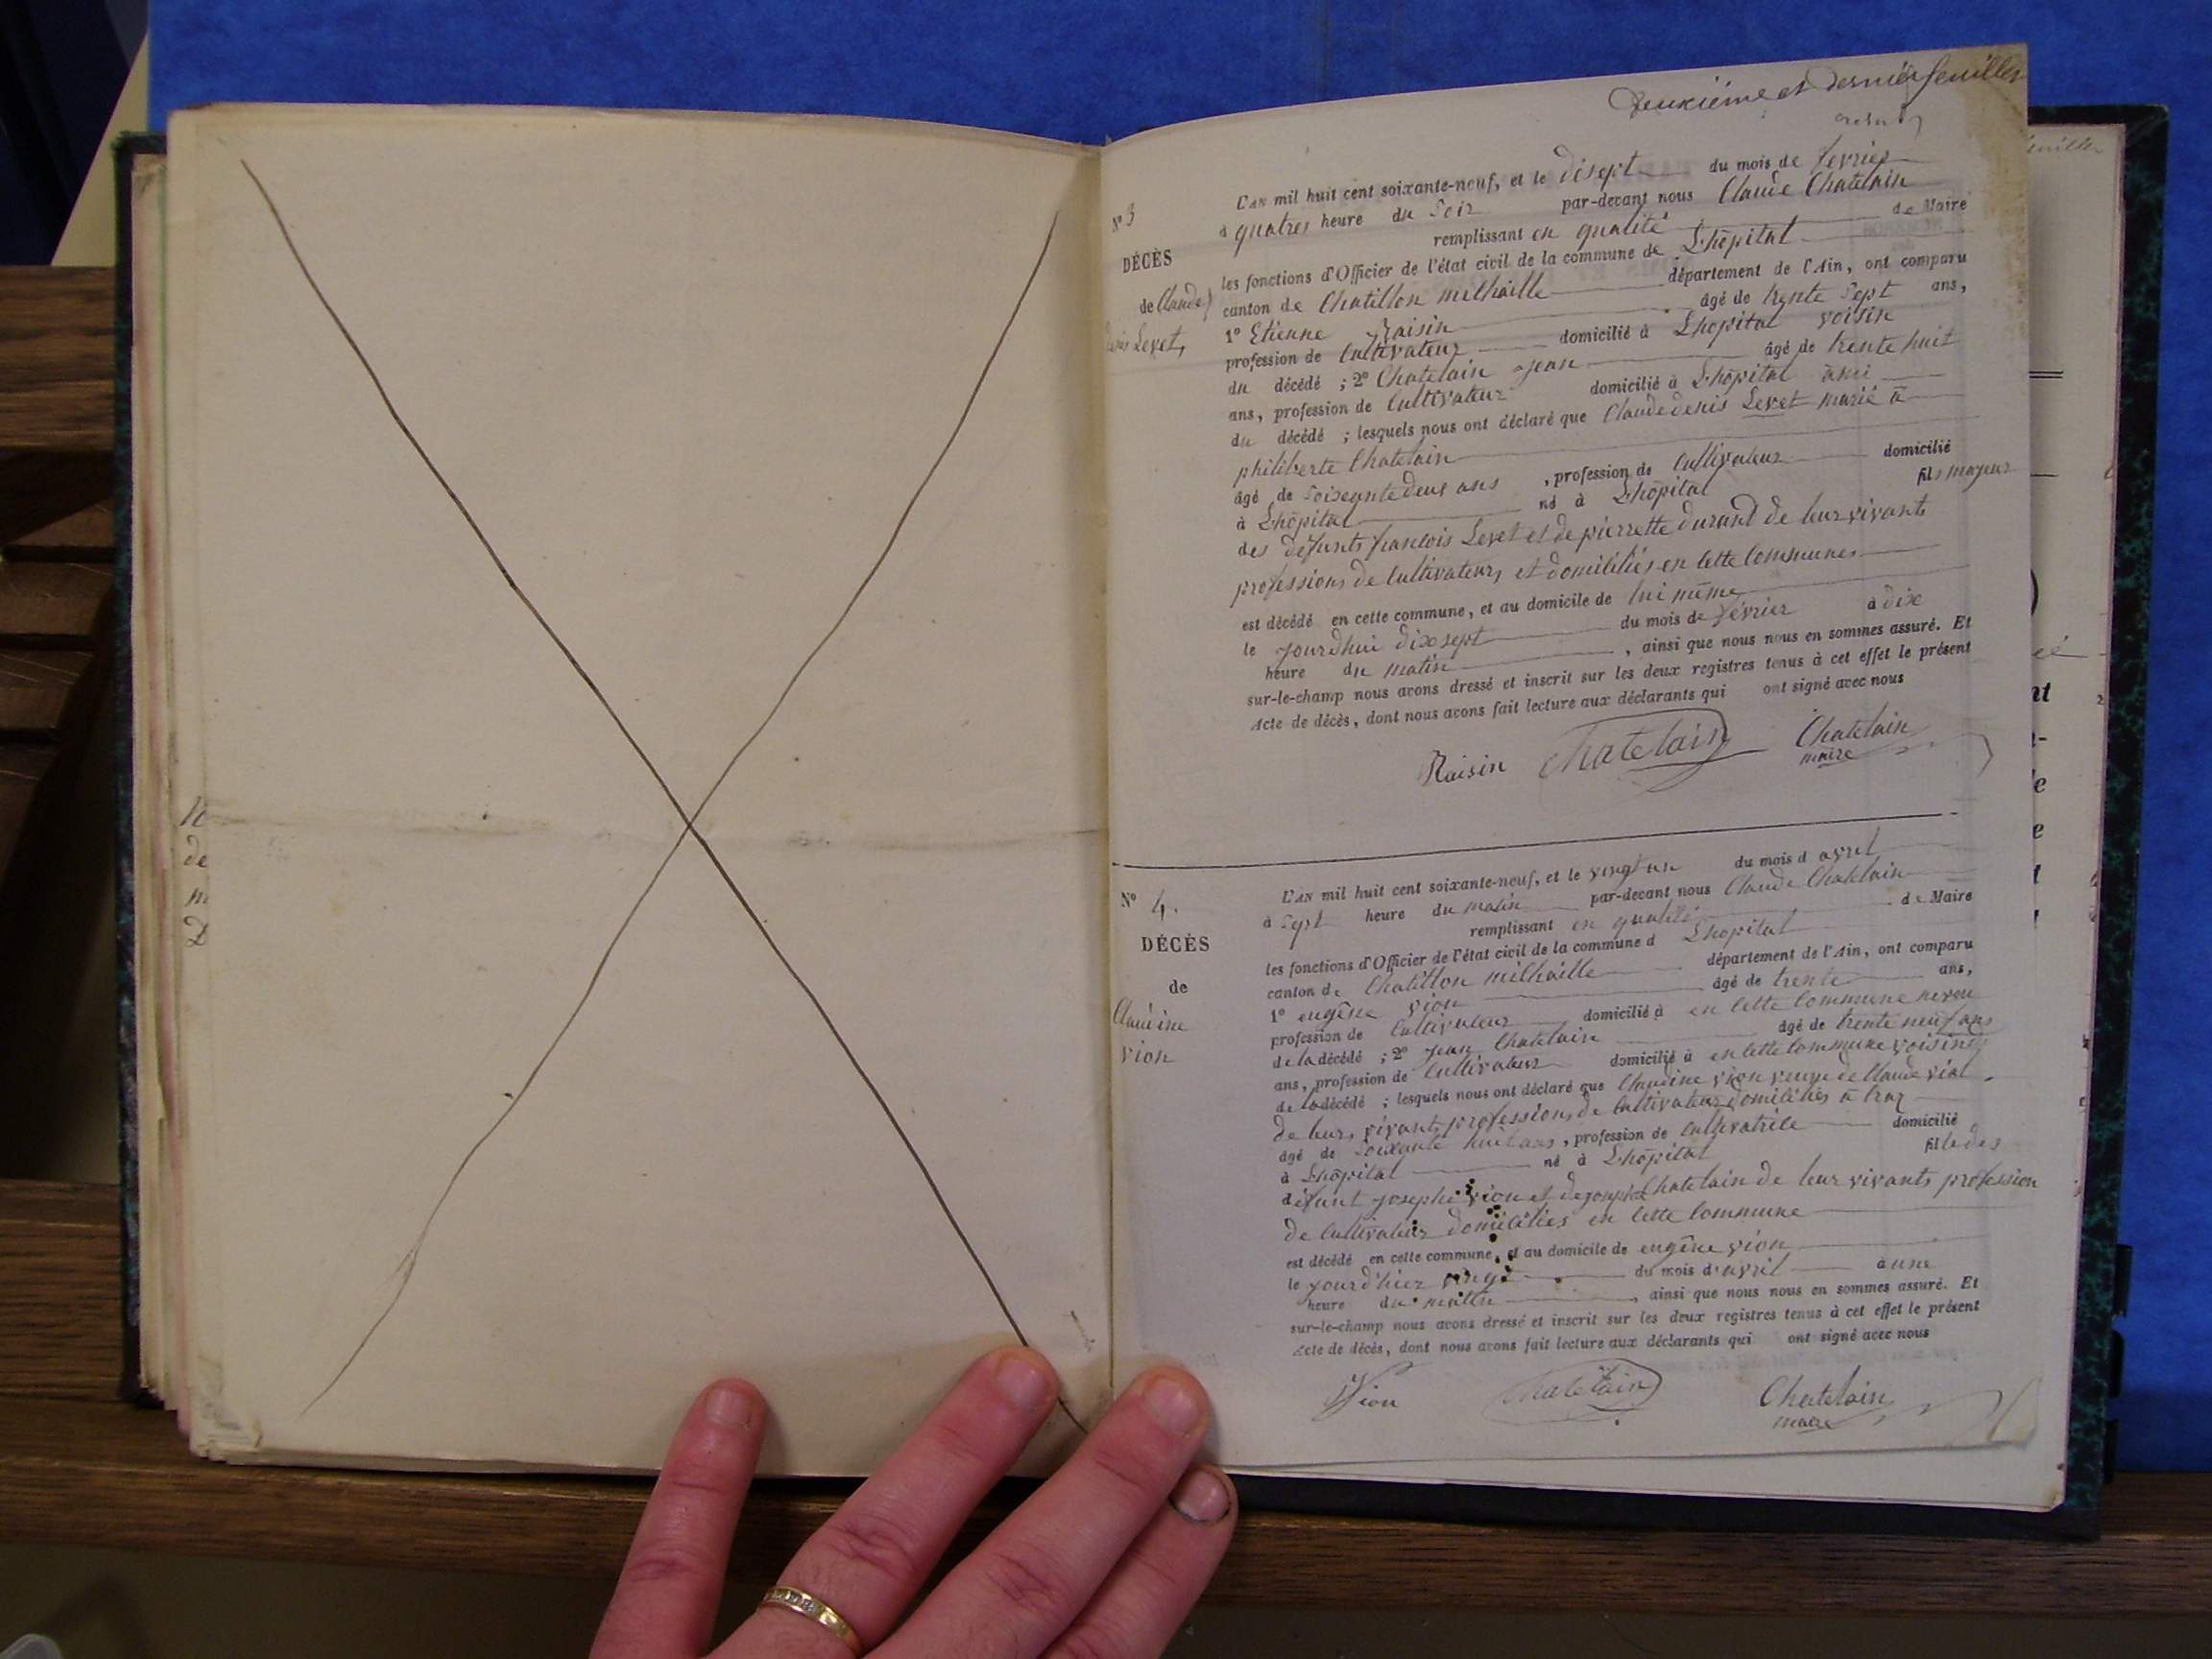 Deuxième et dernier feuilles
N° 3
DÉCÈS
de Claude
Denis Levet,
L'AN mil huit cent soixante-neuf, et le disept du mois de fevrier
à quatres heure du Soir par-devant nous Claude Chatelain
remplissant en qualité de Maire
les fonctions d'Officier de l'état civil de la commune de L'hôpital
canton de Chatillon michaille département de l'Ain, ont comparu
1° Etienne Raisin âgé de trente Sept ans,
profession de Cultivateur domicilié à L'hopital voisin
du décédé ; 2° Chatelain jean âgé de trente huit
ans, profession de Cultivateur domicilié à L'hôpital ami
du décédé ; lesquels nous ont déclaré que Claudedenis Levet marié à
philiberte Chatelain
âgé de Soixante deux ans , profession de Cultivateur domicilié
à L'hôpital né à L'hôpital fils mayeur
des défunts francois Levet et de pierrette durand de leur vivants
professions de Cultivateurs et domiciliés en Cette Communes
est décédé en cette commune, et au domicile de lui même
le jourd'hui dix sept du mois de février à dix
heure du matin , ainsi que nous nous en sommes assuré. Et
sur-le-champ nous avons dressé et inscrit sur les deux registres tenus à cet effet le présent
Acte de décès, dont nous avons fait lecture aux déclarants qui ont signé avec nous
Raisin Chatelain Chatelain
maire
N° 4.
DÉCÈS
de
Claudine
vion
L'AN mil huit cent soixante-neuf, et le vingt un du mois d avril
à Sept heure du matin par-devant nous Claude Chatelain
remplissant en qualité de Maire
les fonctions d'Officier de l'état civil de la commune d L'hopital
canton de Chatillon michaille département de l'Ain, ont comparu
1° eugêne vion âgé de trente ans,
profession de Cultivateur domicilié à en Cette Commune neveu
de la décédé ; 2° jean Chatelain âgé de trente neuf ans
ans, profession de Cultivateur domicilié à en Cette Commune voisin
de la décédé ; lesquels nous ont déclaré que Claudine vion veuve de Claude vial
de leurs vivants professions de Cultivateurs domiciliés à
âgé de Soixante huit ans , profession de Cultivatrice domicilié
à L'hôpital né à L'hôpital fil le des
défunt josephe vion et de Chatelain de leur vivants profession
de Cultivateur domiciliés en Cette Commune
est décédé en cette commune, et au domicile de eugêne vion
le jourd'hier vingt du mois d'avril à une
heure du matin , ainsi que nous nous en sommes assuré. Et
sur-le-champ nous avons dressé et inscrit sur les deux registres tenus à cet effet le présent
Acte de décès, dont nous avons fait lecture aux déclarants qui ont signé avec nous
Vion Chatelain Chatelain
maire